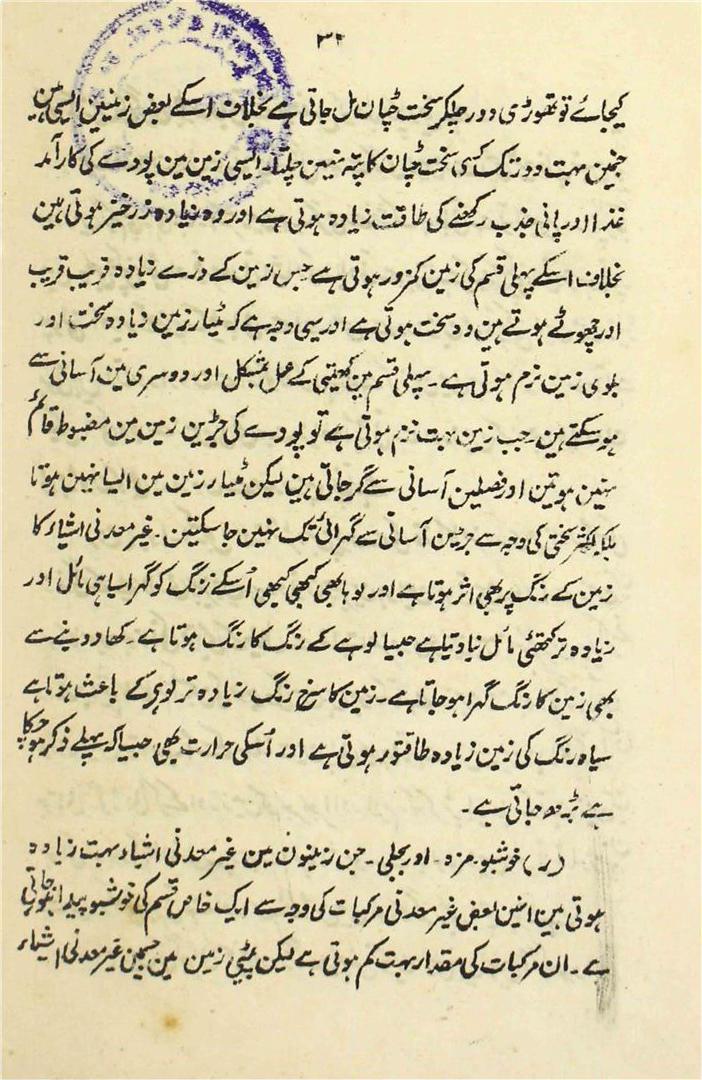 ۳۲
کیجائے تو تھوڑی دور چلکر سخت چٹان مل جاتی ہے بخلاف اسکے بعض زمینین ایسی ہین
جنمین بہت دور تک کسی سخت چٹان کا پتہ نہین چلتا۔ ایسی زمین مین پودے کی کارآمد
غذا اور پانی جذب رکھنے کی طاقت زیادہ ہوتی ہے اور وہ زیادہ زرخیز ہوتی ہین
بخلاف اسکے پہلی قسم کی زمین کمزور ہوتی ہے جس زمین کے ذرے زیادہ قریب قریب
اور چھوٹے ہوتے ہین وہ سخت ہوتی ہے اور یہی وجہ ہے کہ مٹیار زمین زیادہ سخت اور
بلوی زمین نرم ہوتی ہے۔ پہلی قسم مین کھیتی کے عمل بمشکل اور دوسری مین آسانی سے
ہو سکتے ہین۔ جب زمین بہت نرم ہوتی ہے تو پودے کی جڑین زمین مین مضبوط قائم
نہین ہوتین اور فصلین آسانی سے گر جاتی ہین لیکن مٹیار زمین مین ایسا نہین ہوتا
بلکہ بکثر سختی کی وجہ سے جڑین آسانی سے گہرائی تک نہین جا سکتین۔ غیر معدنی اشیاء کا
زمین کے رنگ پر بھی اثر ہوتا ہے اور لوہا بھی کبھی کبھی اُسکے رنگ کو گہرا سیاہی مائل اور
زیادہ تر کتھئی مائل بنا دیتا ہے جیسا لوہے کے رنگ کا رنگ ہوتا ہے۔ کھاد دینے سے
بھی زمین کا رنگ گہرا ہو جاتا ہے۔ زمین کا سرخ رنگ زیادہ تر لوہے کے باعث ہوتا ہے
سیاہ رنگ کی زمین زیادہ طاقتور ہوتی ہے اور اُسکی حرارت بھی جیسا کہ پہلے ذکر ہو چکا
ہے بڑھ جاتی ہے۔
(ر) خوشبو۔ مزہ۔ اور بجلی۔ جن زمینون مین غیر معدنی اشیاء بہت زیادہ
ہوتی ہین انمین بعض غیر معدنی مرکبات کی وجہ سے ایک خاص قسم کی خوشبو پیدا ہو جاتی
ہے۔ ان مرکبات کی مقدار بہت کم ہوتی ہے لیکن زمین مین جسمین غیر معدنی اشیاء